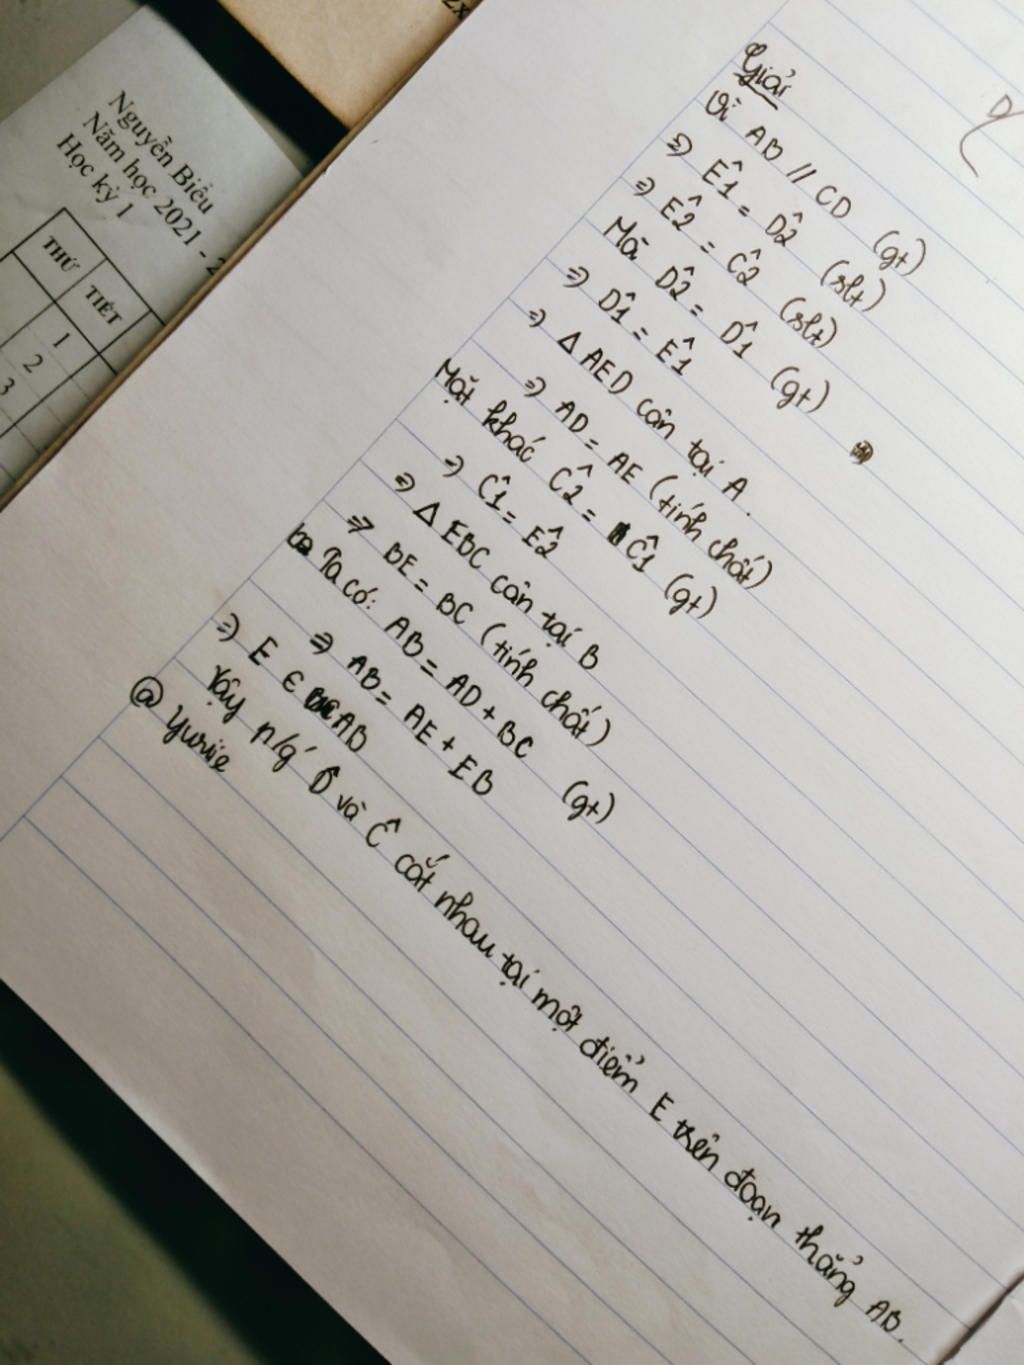 Nguyễn Biểu
Năm học 2021 -
Học kỳ 1
THỨ TIẾT
1
2
3
Giải
Vì AB // CD (gt)
=> Ê1 = D̂2 (slt)
=> Ê2 = Ĉ2 (slt)
Mà D̂2 = D̂1 (gt)
=> D̂1 = Ê1
=> Δ AED cân tại A.
=> AD = AE (tính chất)
Mặt khác Ĉ2 = Ĉ1 (gt)
=> Ĉ1 = Ê2
=> Δ EBC cân tại B
=> BE = BC (tính chất)
Ta có: AB = AD + BC (gt)
=> AB = AE + EB
=> E ∈ AB
Vậy p/g D̂ và Ĉ cắt nhau tại một điểm E trên đoạn thẳng AB.
@yuriie